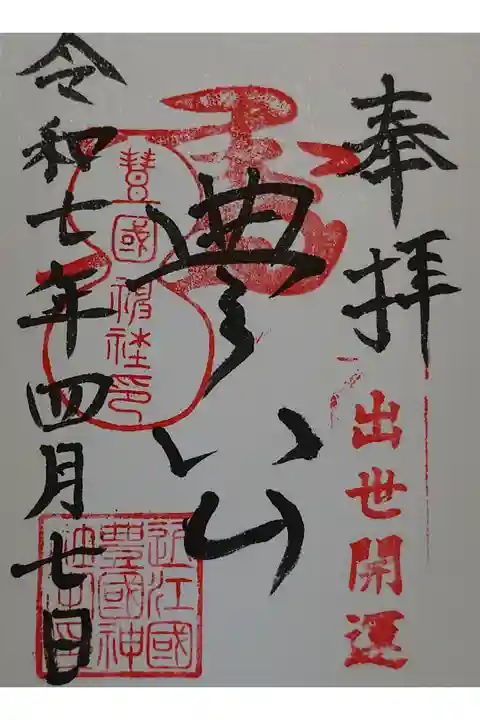 奉拝
出世開運
豊公
豊國神社印
近江國
豊國神
社印
令和七年四月七日